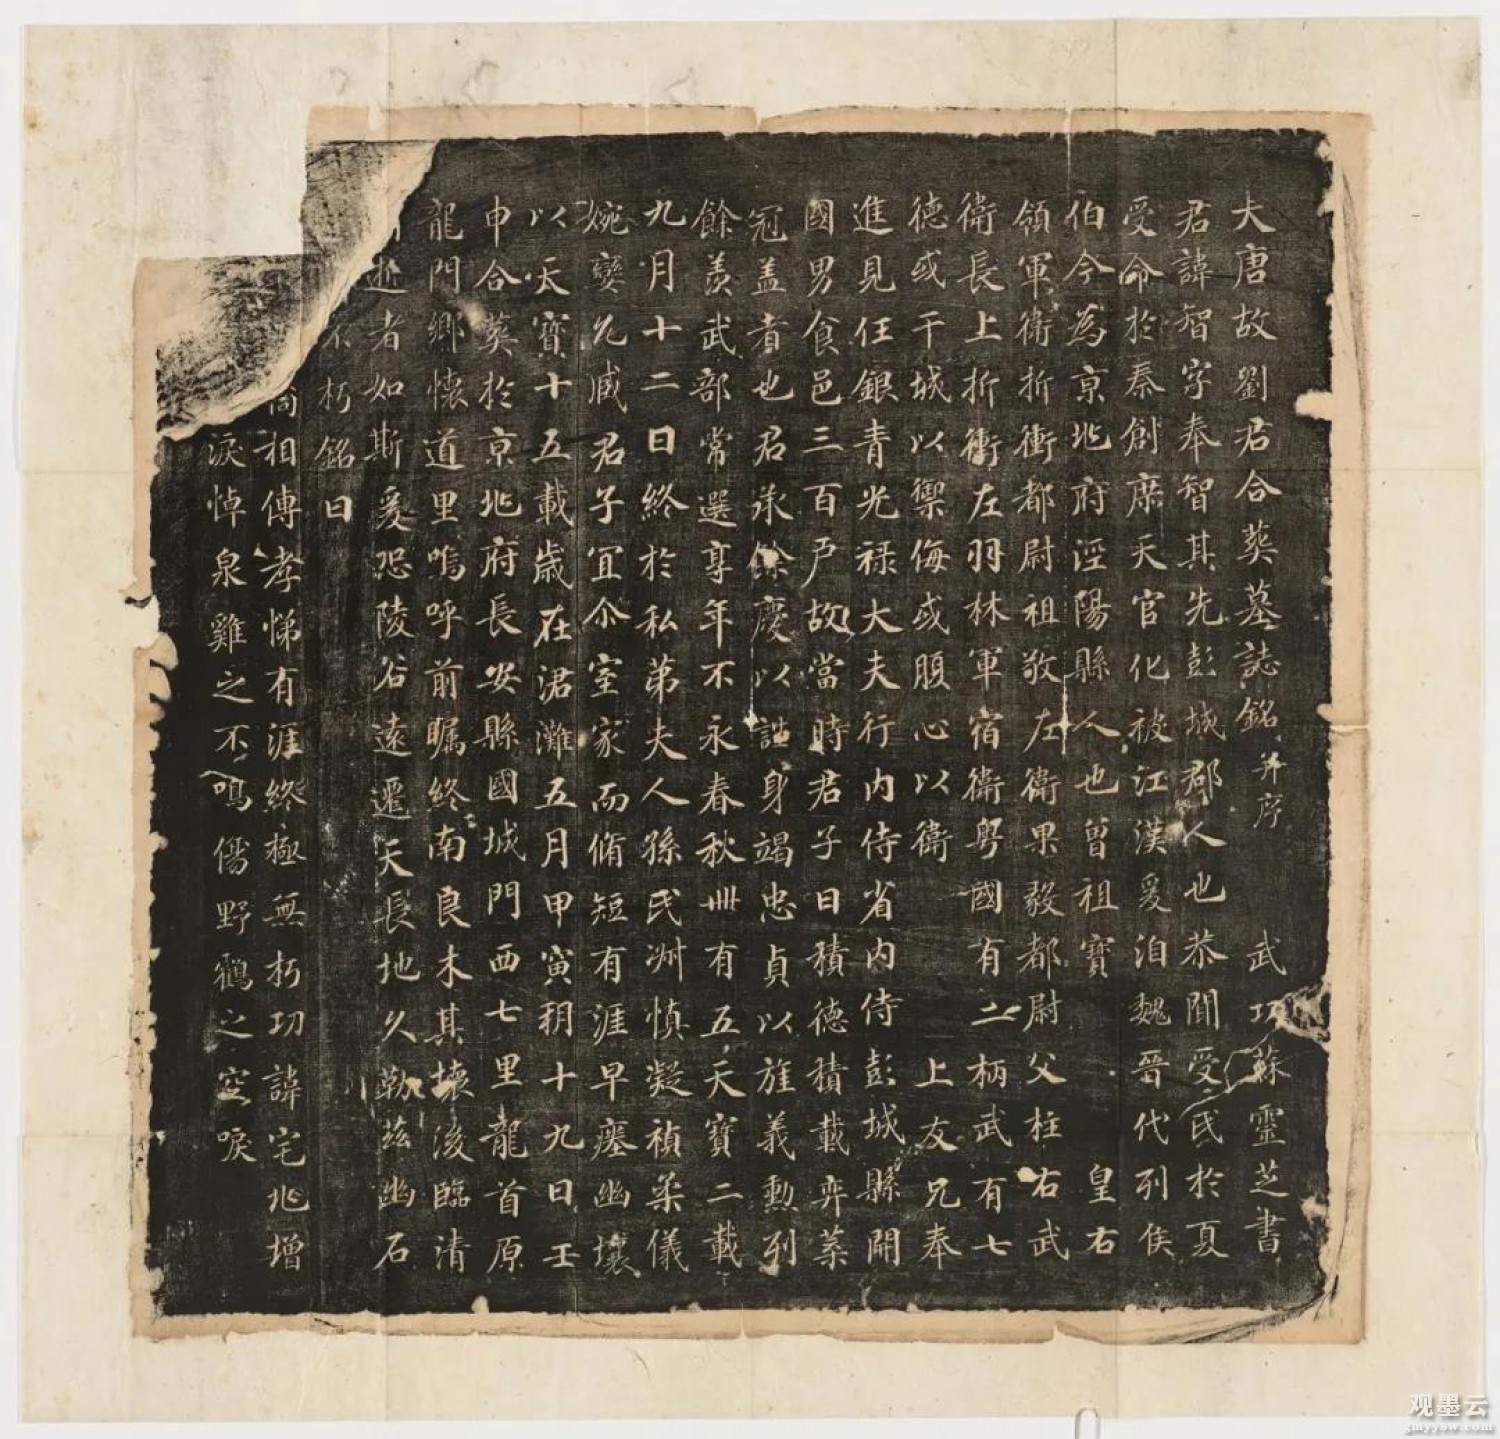 大唐故劉君合葬墓誌銘并序 武功蘇靈芝書
君諱智字奉智其先彭城郡人也恭聞受氏於夏
受命於秦創席天官化被江漢爰洎魏晉代列侯
伯今為京兆府涇陽縣人也曾祖寶 皇右
領軍衛折衝都尉祖敬左衛果毅都尉父柱右武
衛長上折衝左羽林軍宿衛粤國有二柄武有七
德或干城以禦侮或腹心以衛 上友兄奉
進見任銀青光祿大夫行內侍省內侍彭城縣開
國男食邑三百戶故當時君子曰積德積載弈葉
冠盖者也君承餘慶以謹身竭忠貞以旌義勲列
餘羨武部常選享年不永春秋卌有五天寶二載
九月十二日終於私第夫人孫氏淑慎凝禎柔儀
婉孌允咸君子宜尒室家而脩短有涯早瘞幽壤
以天寶十五載歲在涒灘五月甲寅朔十九日壬
申合葬於京兆府長安縣國城門西七里龍首原
龍門鄉懷道里嗚呼前矚終南良木其壞後臨清
逝者如斯爰恐陵谷遠遷天長地久勒茲幽石
不朽銘曰
相傳孝悌有涯終極無朽功諱宅兆增
淚悼泉雞之不鳴傷野鶴之空唳
观墨云
gmyysw.com